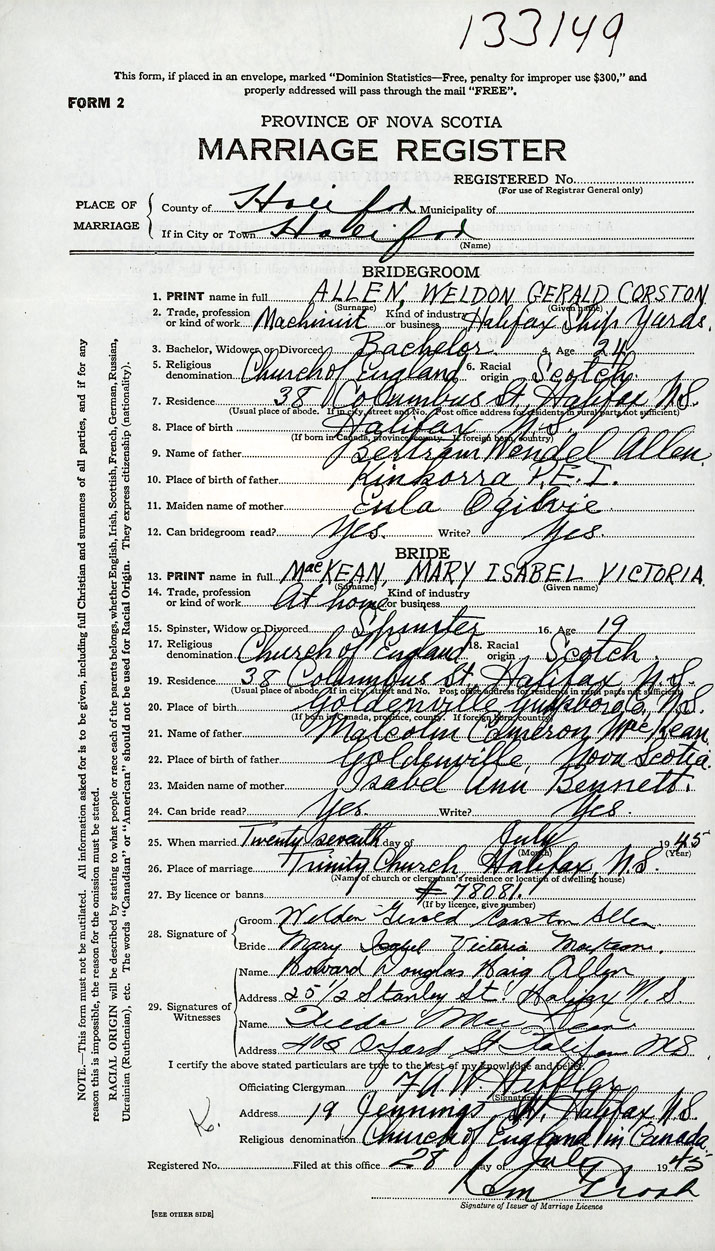 133149
This form, if placed in an envelope, marked "Dominion Statistics—Free, penalty for improper use $300," and
properly addressed will pass through the mail "FREE".
FORM 2
PROVINCE OF NOVA SCOTIA
MARRIAGE REGISTER
REGISTERED No.
(For use of Registrar General only)
PLACE OF MARRIAGE
County of Halifax Municipality of
If in City or Town Halifax
(Name)
BRIDEGROOM
1. PRINT name in full ALLEN, WELDON GERALD CORSTON
(Surname) (Given name)
2. Trade, profession or kind of work Machinist Kind of industry or business Halifax Ship Yards.
3. Bachelor, Widower or Divorced Bachelor. 4. Age 24
5. Religious denomination Church of England 6. Racial origin Scotch
7. Residence 38 Columbus St. Halifax N.S.
(Usual place of abode. If in city, street and No. Post office address for residents in rural parts not sufficient)
8. Place of birth Halifax N.S.
(If born in Canada, province, county. If foreign born, country)
9. Name of father Bertram Wendel Allen.
10. Place of birth of father Kinkorra P.E.I.
11. Maiden name of mother Eula Ogilvie
12. Can bridegroom read? Yes. Write? Yes.
BRIDE
13. PRINT name in full MacKEAN, MARY ISABEL VICTORIA.
(Surname) (Given name)
14. Trade, profession or kind of work At home Kind of industry or business
15. Spinster, Widow or Divorced Spinster 16. Age 19
17. Religious denomination Church of England 18. Racial origin Scotch
19. Residence 38 Columbus St. Halifax N.S.
(Usual place of abode. If in city, street and No. Post office address for residents in rural parts not sufficient)
20. Place of birth Goldenville, Guysboro, N.S.
(If born in Canada, province, county. If foreign born, country)
21. Name of father Malcolm Cameron MacKean
22. Place of birth of father Goldenville, Nova Scotia.
23. Maiden name of mother Isabel Ann Bennett.
24. Can bride read? Yes. Write? Yes.
25. When married Twenty seventh day of July 1945
(Month) (Year)
26. Place of marriage Trinity Church Halifax, N.S.
(Name of church or clergyman's residence or location of dwelling house)
27. By licence or banns # 78081.
(If by licence, give number)
28. Signature of
Groom Weldon Gerald Corston Allen
Bride Mary Isabel Victoria MacKean.
29. Signatures of Witnesses
Name Howard Douglas Haig Allen
Address 25 1/2 Stanley St. Halifax N.S
Name
Address Oxford St Halifax N.S.
I certify the above stated particulars are true to the best of my knowledge and belief.
Officiating Clergyman
(Signature)
Address 19 Jennings St. Halifax N.S.
Religious denomination Church of England in Canada.
Registered No. Filed at this office 28 day of July 1945
Signature of Issuer of Marriage Licence
[SEE OTHER SIDE]
NOTE.—This form must not be mutilated. All information asked for is to be given, including full Christian and surnames of all parties, and if for any
reason this is impossible, the reason for the omission must be stated.
RACIAL ORIGIN will be described by stating to what people or race each of the parents belongs, whether English, Irish, Scottish, French, German, Russian,
Ukrainian (Ruthenian), etc. The words "Canadian" or "American" should not be used for Racial Origin. They express citizenship (nationality).